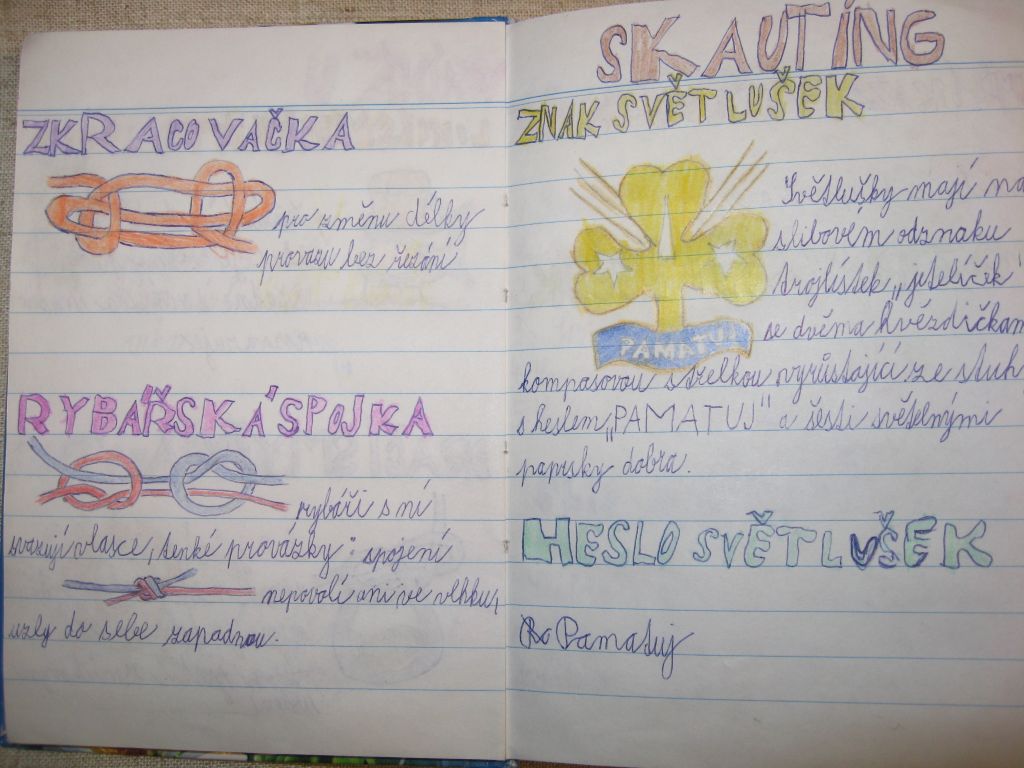 ZKRACOVAČKA
pro změnu délky
provazu bez řezání
RYBAŘSKÁ SPOJKA
rybáři s ní
svazují vlasce, tenké provázky : spojení
nepovolí ani ve vlhku,
uzly do sebe zapadnou.
SKAUTÍNG
ZNAK SVĚTLUŠEK
Světlušky mají na
slibovém odznaku
trojlístek „jetelíček"
se dvěma hvězdičkam
PAMATUJ
kompasovou střelkou vyrůstající ze stuh
s heslem „PAMATUJ" a šesti světelnými
paprsky dobra.
HESLO SVĚTLUŠEK
Pamatuj